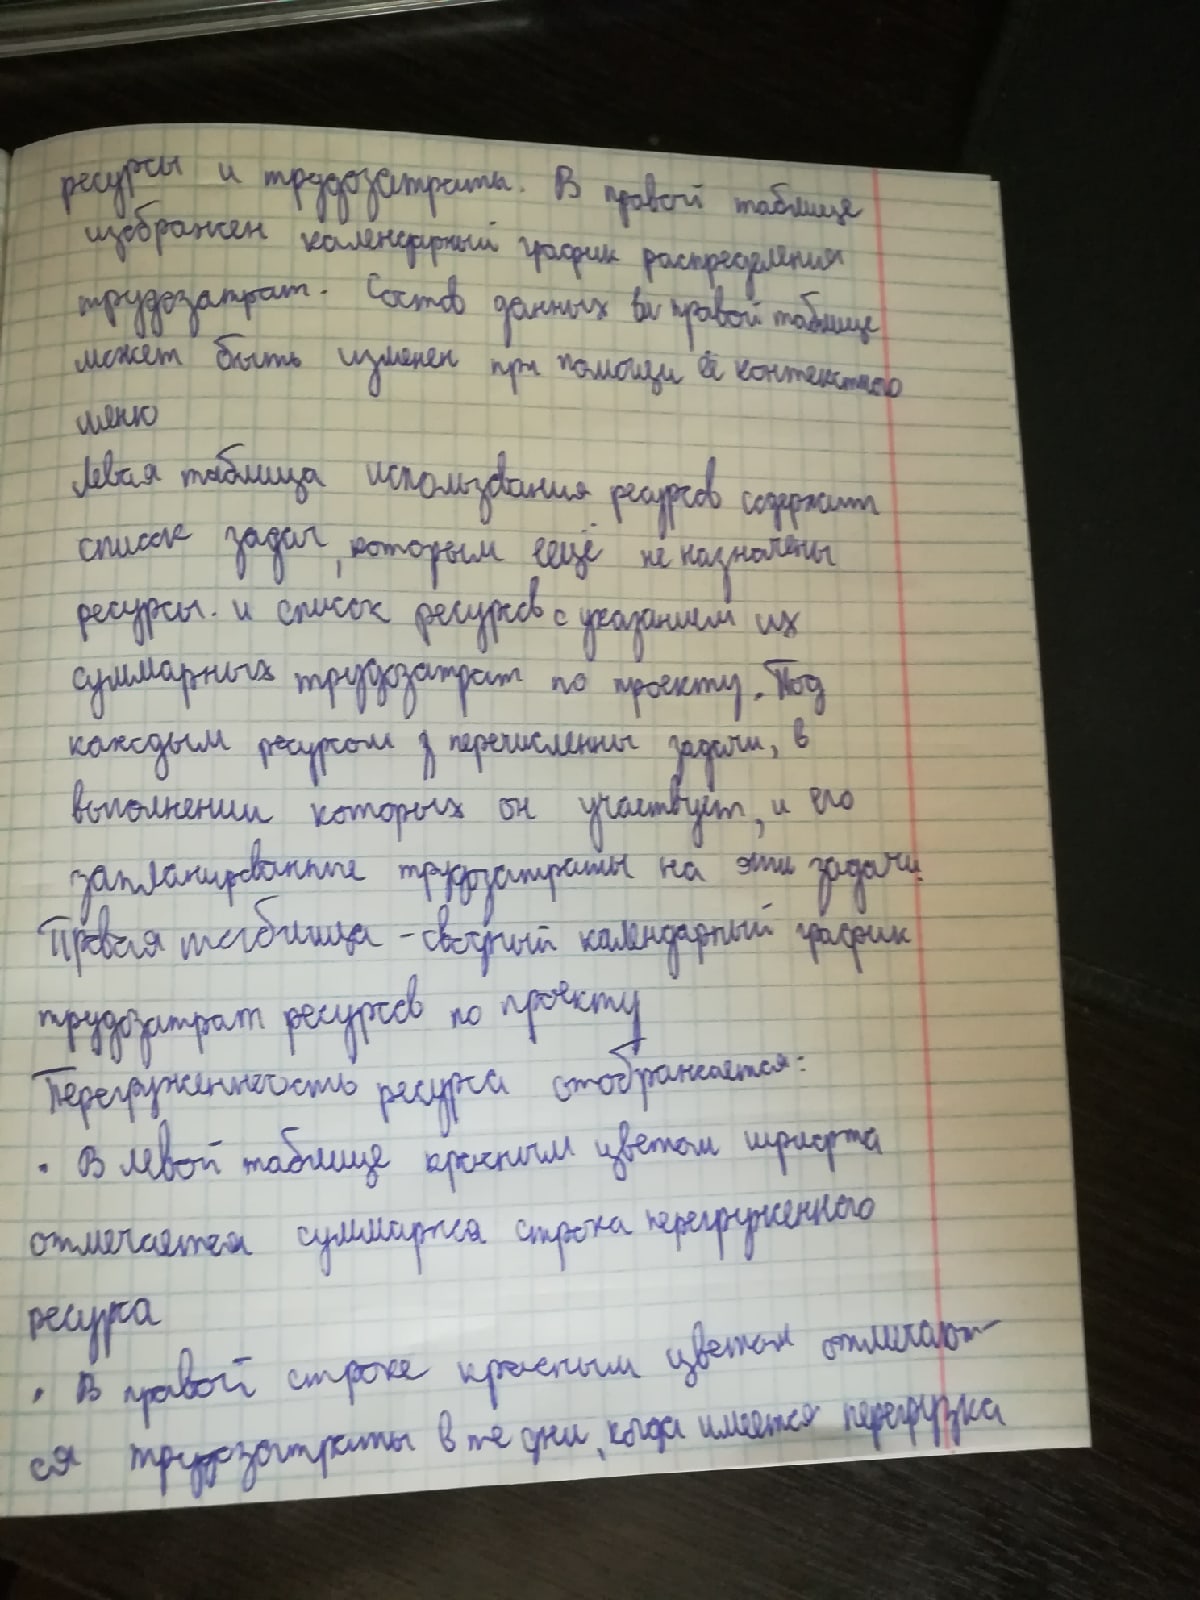 ресурсы и трудозатраты. В правой таблице
изображен календарный график распределения
трудозатрат. Состав данных в правой таблице
может быть изменен при помощи её контекстного
меню
Левая таблица использования ресурсов содержит
список задач, которым ещё не назначены
ресурсы. и список ресурсов с указанием их
суммарных трудозатрат по проекту. Под
каждым ресурсом перечисленны задачи, в
выполнении которых он участвует, и его
запланированные трудозатраты на эти задачи.
Правая таблица - сводный календарный график
трудозатрат ресурсов по проекту
Перегруженность ресурса отображается:
• В левой таблице красным цветом шрифта
отмечается суммарная строка перегруженного
ресурса
• В правой строке красным цветом отмечают-
ся трудозатраты в те дни, когда имеется перегрузка